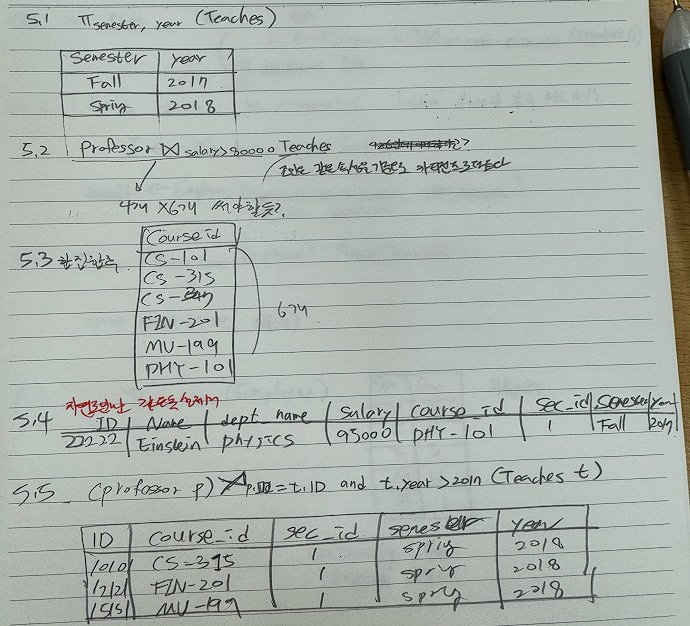 5.1 π semester, year (Teaches)
Semester year
Fall 2017
Spriy 2018
5.2 Professor ⋈ salary>80000 Teaches
4개 ×6개 써야할듯?
Course id
5.3 CS-101
CS-315
CS-347
FIN-201 6개
MU-199
PHY-101
5.4 자연조인
ID Name dept_name Salary Course_id Sec_id Semester year
22222 Einstein physics 95000 PHY-101 1 Fall 2017
5.5 (professor p) = t.ID and t.year > 2017 (Teaches t)
ID course_id sec_id semester year
10101 CS-315 1 spriy 2018
12121 FIN-201 1 spriy 2018
15151 MU-199 1 spriy 2018